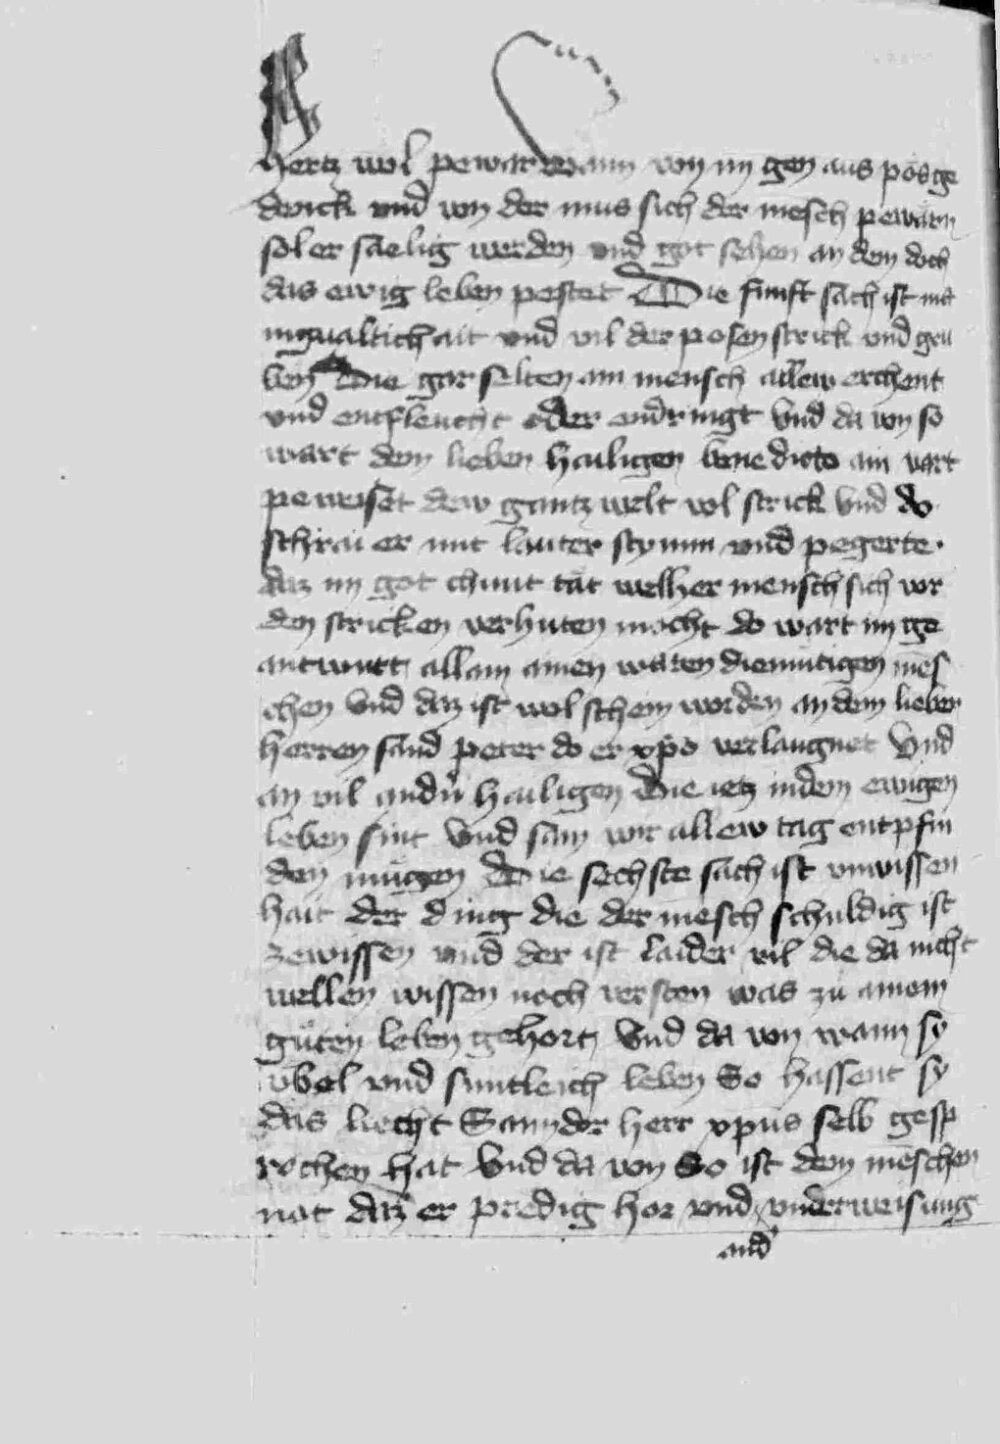 hertz wol pewar wann von im gen aus pos ge
denck und von der mus sich der mēsch pewarn
sol er saelig werden und got sehen an dem doch
das ewig leben pestet Die funft sach ist ma
nigualtichait und vil der posen strick und gru
ben die gar selten ain mensch allew erchent
und entfleucht oder endringt Und da von so
wart dem lieben hailigen benedicto ain vart
peweiset dew gantz welt vol strick Und do
schrai er mit lauter stymm und pegerte.
daz im got chunt tät welher mensch sich vor
den stricken verhuten mocht do wart im ge
antwurtt allain ainen waren diemütigen mēs
chen Und daz ist wol schein worden an dem lieben
herren sand peter do er xp̄o verlaugnet Und
an vil andern hailigen Die ietz in dem ewigen
leben sint Und sam wir allew tag entpfin
den mügen Die sechste sach ist unwissen
hait der ding die der mēsch schuldig ist
zewissen und der ist laider vil die da nicht
wellen wissen noch versten was zü ainem
güten leben gehort Und da von wann sy
übel und suntleich leben So hassent sy
das liecht Sam der herr xp̄us selb gesp
rochen hat Und da von So ist dem mēschen
not daz er predig hor und underweisung
and